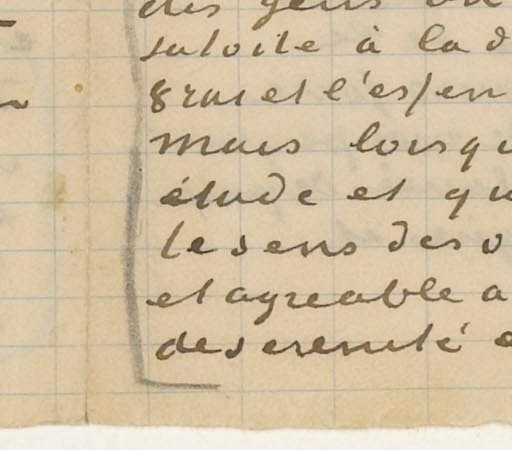 des gens
à la d
et l'es
mais lorsqu
étude et qu
le sens des
et agreable a
de serenité